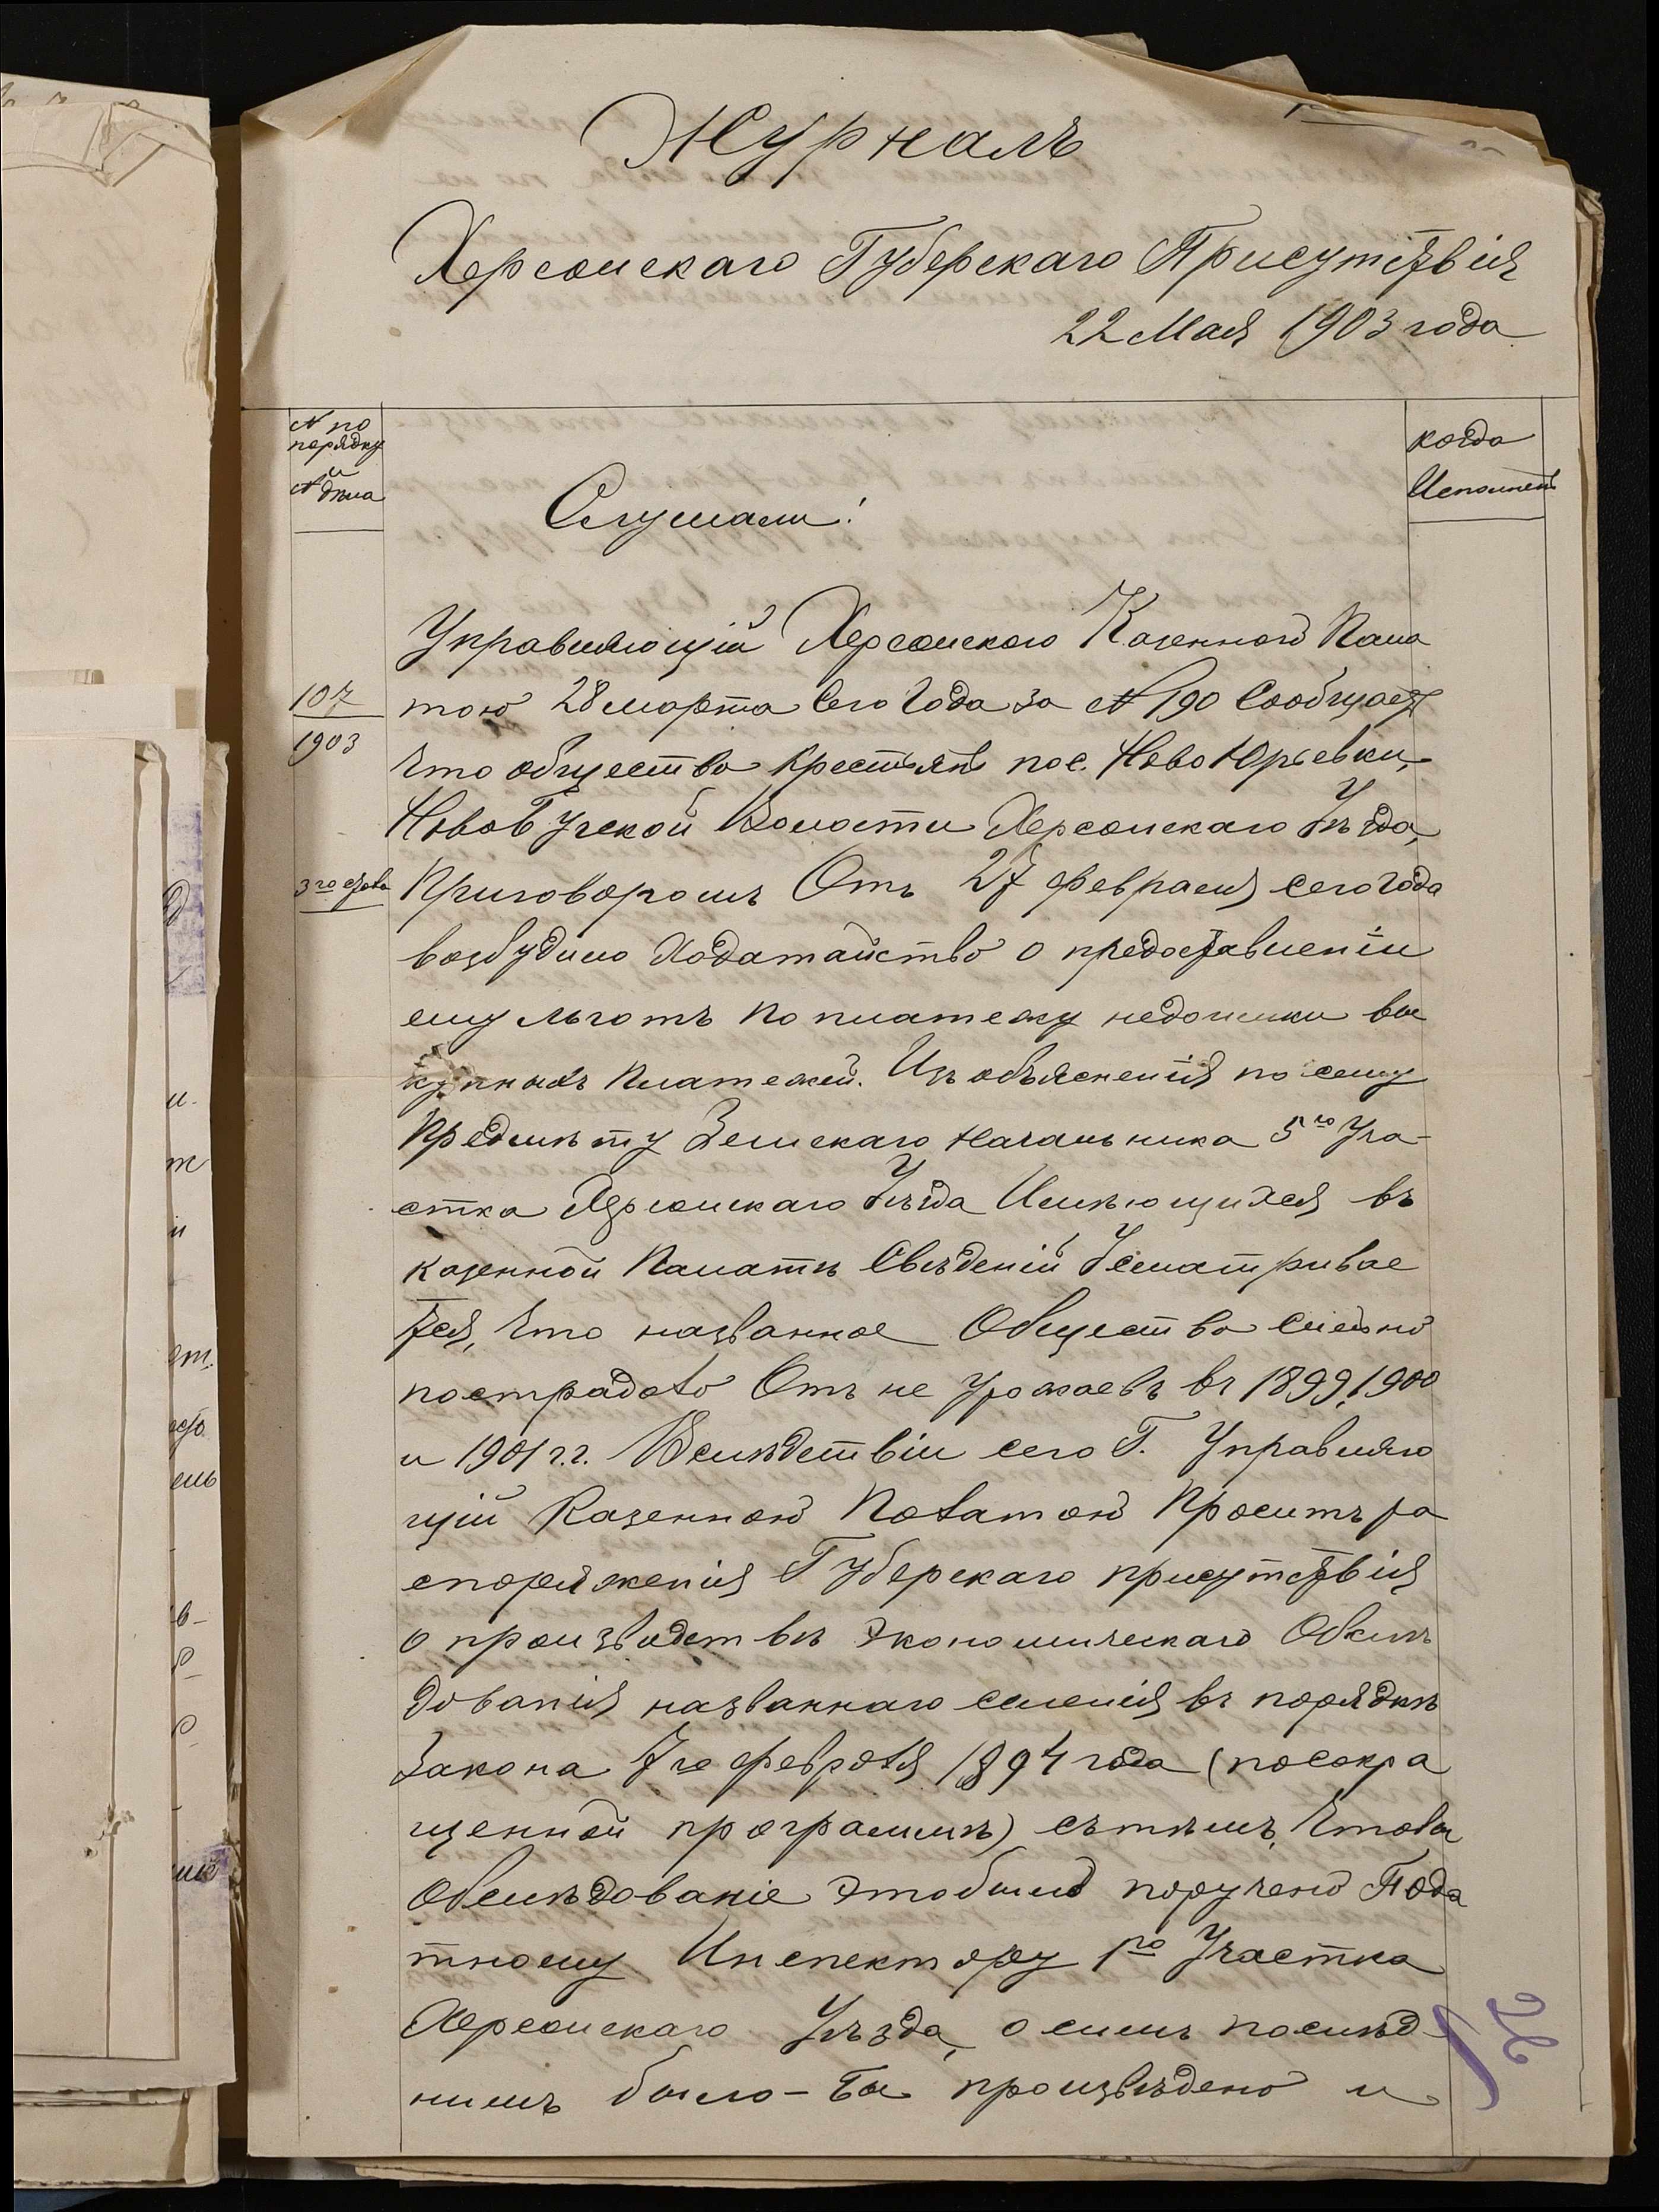 Журналъ
Херсонскаго Губерскаго Присутствія
22 Мая 1903 года
№ по
порядку
и
№ дѣла
когда
Исполнен
Слушали:
Управляющій Херсонского Казенною Пала
107
тою 28 марта Сего Года за № 190 Сообщает
1903
Что общество крестьянъ пос. Ново Юрьевки,
НовоБугской Волости Херсонскаго Уѣзда,
3го стола
Приговоромъ Отъ 27 февраля сего Года
возбудило Ходатайство о предоставленіи
ему льготъ по платежу недоимки вы
купныхъ Платежей. Изъ объясненія по сему
Предмѣту Земскаго Начальника 5го Уча-
стка Херсонскаго Уѣзда Имѣющихся въ
казенной Палатѣ Свѣденій Усматривае
тся, Что названное Общество сильно
пострадало Отъ не Урожаевъ въ 1899, 1900
и 1901 г.г. Вслѣдствіи сего Г. Управляю
щій Казенною Палатою Проситъ ра
споряженія Губерскаго присутствія
о производствѣ экономическаго Обслѣ
дованія названнаго селенія въ порядкѣ
Закона 7го февраля 1894 года (по сокра
щенной программѣ) съ тѣмъ, Чтобы
Обслѣдованіе это было поручено Пода
тному Инспектору 1го Участка
Херсонскаго Уѣзда, о симъ послѣд-
нимъ было-бы произвѣдено и
26